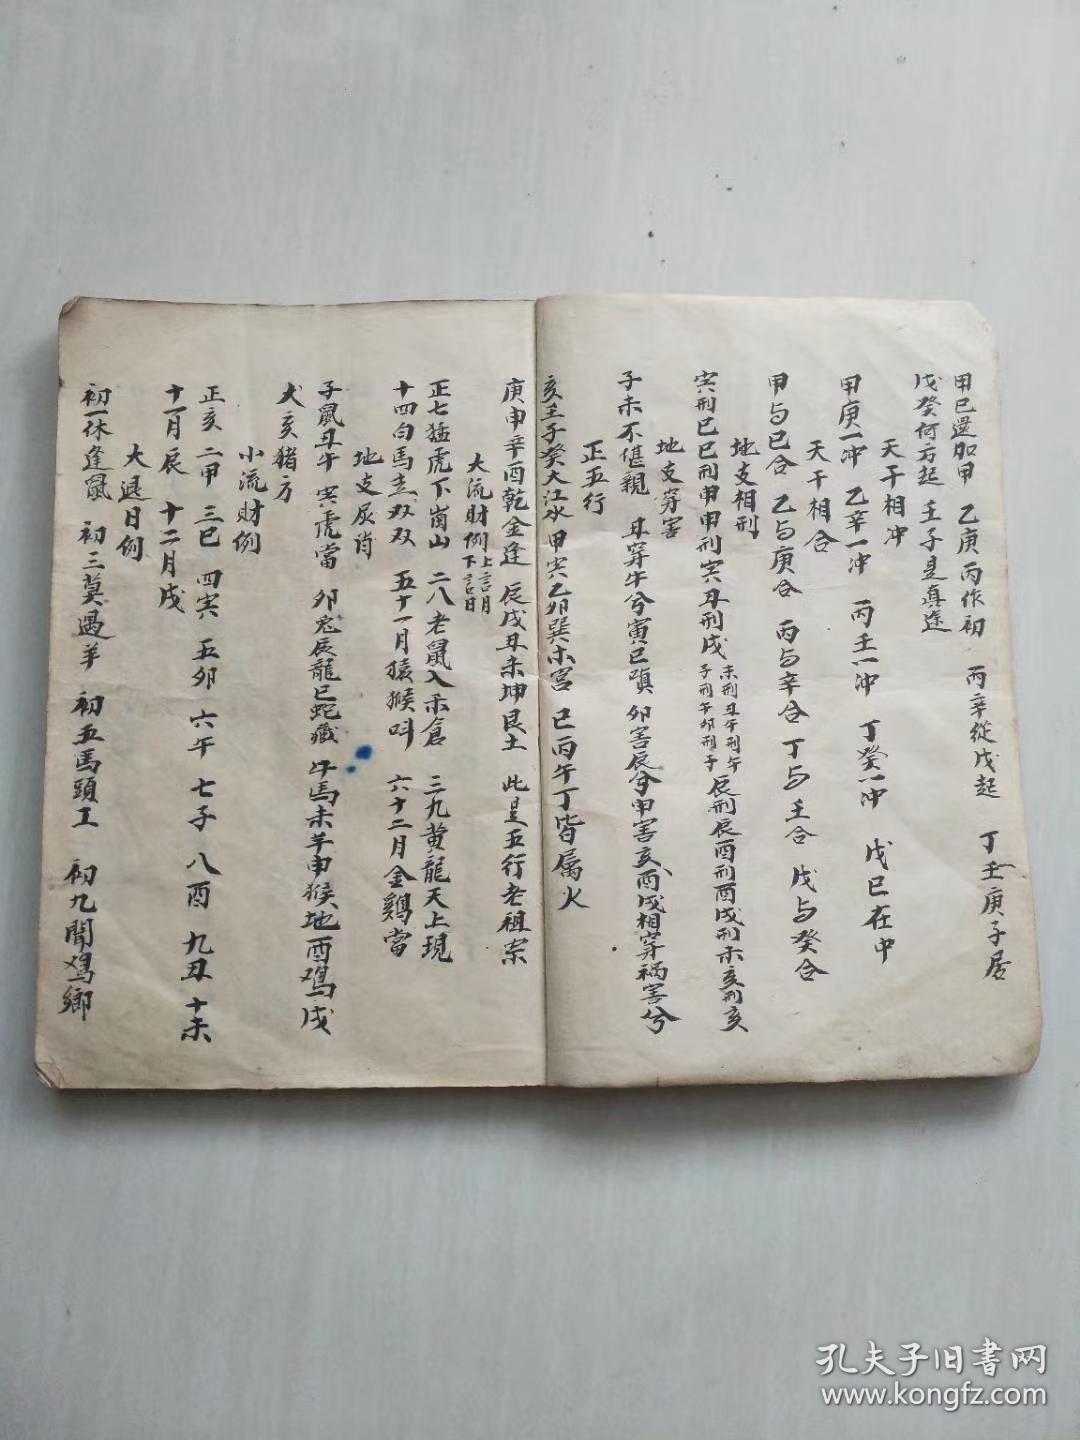 甲己還加甲 乙庚丙作初 丙辛從戊起 丁壬庚子居
戊癸何方起 壬子是真途
天干相冲
甲庚一冲 乙辛一冲 丙壬一冲 丁癸一冲 戊己在中
天干相合
甲与己合 乙与庚合 丙与辛合 丁与壬合 戊与癸合
地支相刑
寅刑巳巳刑申申刑寅丑刑戌 未刑丑午刑午 子刑卯卯刑子 辰刑辰酉刑酉戌刑未亥刑亥
地支穿害
子未不堪親 丑穿午兮寅巳嗔 卯害辰兮申害亥 酉戌相穿祸害兮
正五行
亥壬子癸大江水 甲寅乙卯巽木宮 巳丙午丁皆属火
庚申辛酉乾金逢 辰戌丑未坤艮土 此是五行老祖宗
大流財例 上言月 下言日
正七猛虎下崗山 二八老鼠入禾倉 三九黄龍天上現
十四白馬走双双 五十一月猿猴叫 六十二月金鷄當
地支辰肖
子鼠丑牛 寅虎當 卯兎辰龍巳蛇藏 午馬未羊申猴地酉鸡戌
犬亥猪方
小流財例
正亥 二甲 三巳 四寅 五卯 六午 七子 八酉 九丑 十未
十一月辰 十二月戌
大退日例
初一休逢鼠 初三莫遇羊 初五馬頭上 初九聞鸡鄉
孔夫子旧書网
www.kongfz.com